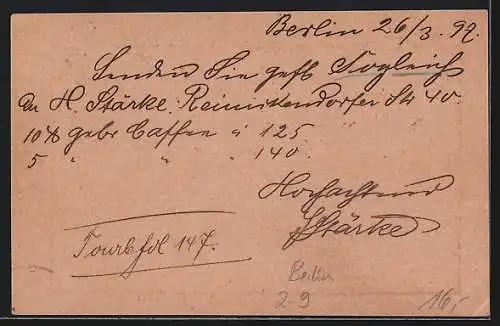 Berlin 26/3. 97.
Senden Sie gefl sogleich
an H. Stärke. Reinickendorfer Str 40.
10 ℔ gebr Caffee à 125
5 " " " 140.
Hochachtend
HStärke
147.
Berlin
2-9
16,-